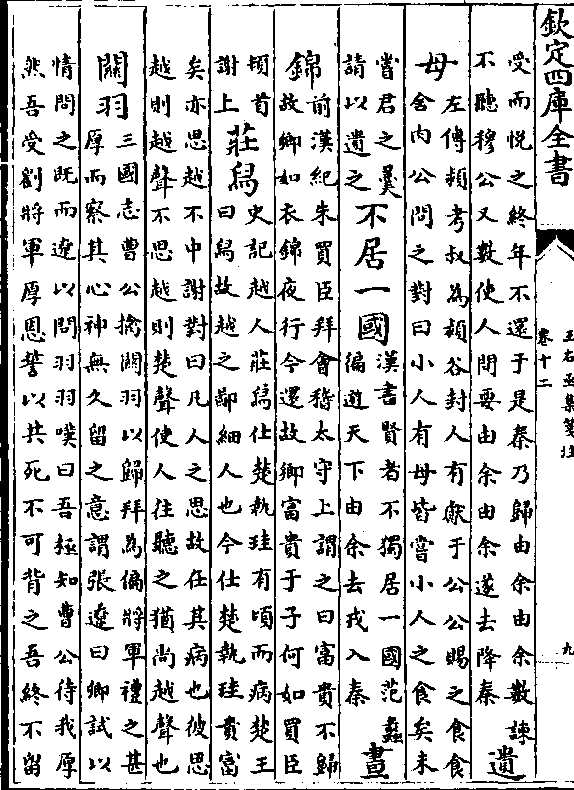 欽定四庫全書
王右丞集箋注
卷十二
九
受而悦之終年不還于是秦乃歸由余由余數諫
不聽穆公又數使人間要由余由余遂去降秦
遺
母
左傳頴考叔為頴谷封人有獻于公公賜之食食
舍肉公問之對曰小人有母皆嘗小人之食矣未
嘗君之羮
請以遺之
不居一國
漢書賢者不獨居一國范蠡
徧遊天下由余去戎入秦
晝
錦
前漢紀朱買臣拜會稽太守上謂之曰富貴不歸
故鄉如衣錦夜行今還故鄉富貴于子何如買臣
頓首
謝上
莊舄
史記越人莊舄仕楚執珪有頃而病楚王
曰舄故越之鄙細人也今仕楚執珪貴富
矣亦思越不中謝對曰凡人之思故在其病也彼思
越則越聲不思越則楚聲使人往聽之猶尚越聲也
關羽
三國志曹公擒關羽以歸拜為偏將軍禮之甚
厚而察其心神無久留之意謂張遼曰卿試以
情問之既而遼以問羽羽嘆曰吾極知曹公待我厚
然吾受劉將軍厚恩誓以共死不可背之吾終不留